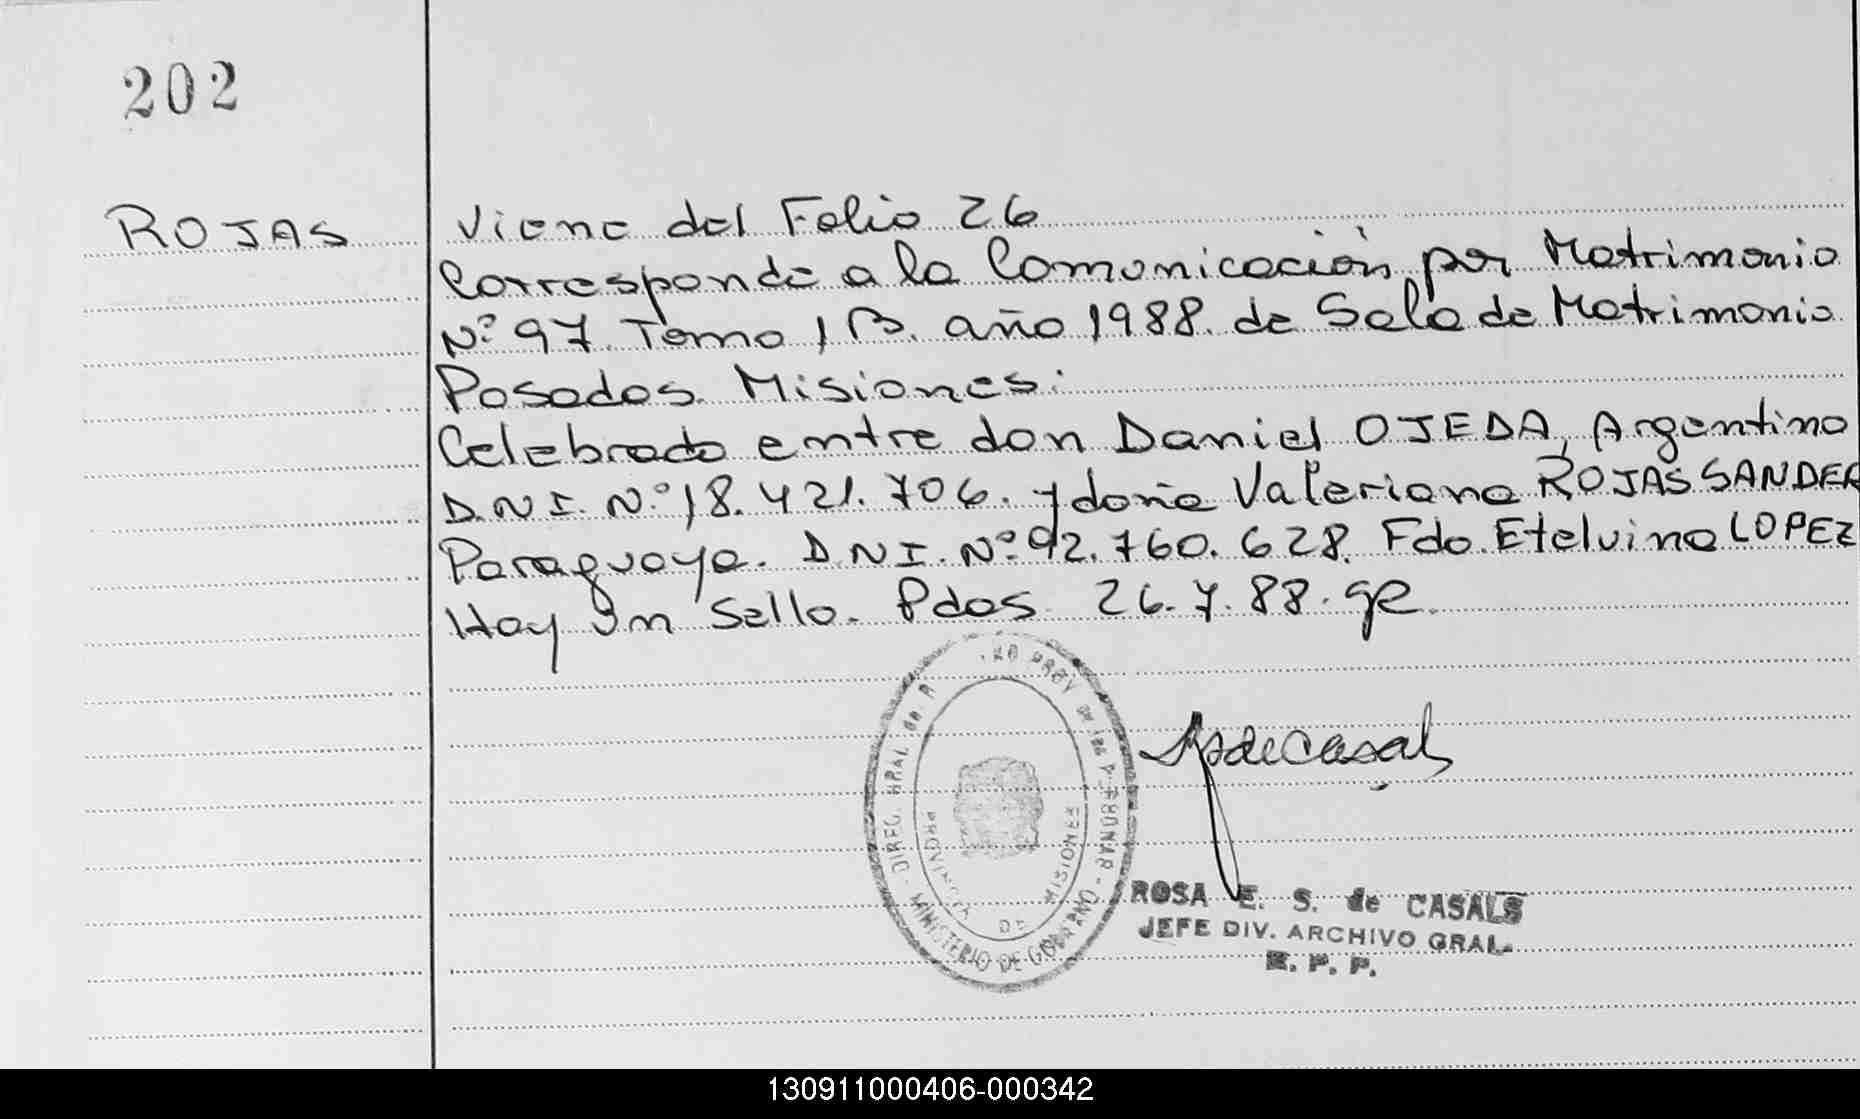 202
ROJAS
Viene del Folio 26
Corresponde a la Comunicación por Matrimonio
Nº 97. Tomo 1 B. año 1988. de Sala de Matrimonio
Posadas. Misiones:
Celebrado entre don Daniel OJEDA, Argentino
D.N.I. Nº 18.421.706. y doña Valeriana ROJAS SANDER
Paraguaya. D.N.I. Nº 92.760.628. Fdo. Etelvina LOPEZ
Hay un Sello. Pdas. 26.7.88.
DIREC. GRAL. de
MINISTERIO DE GOBIERNO
PROVINCIA DE MISIONES
ROSA E. S. de CASALS
JEFE DIV. ARCHIVO GRAL.
R. P. P.
130911000406-000342